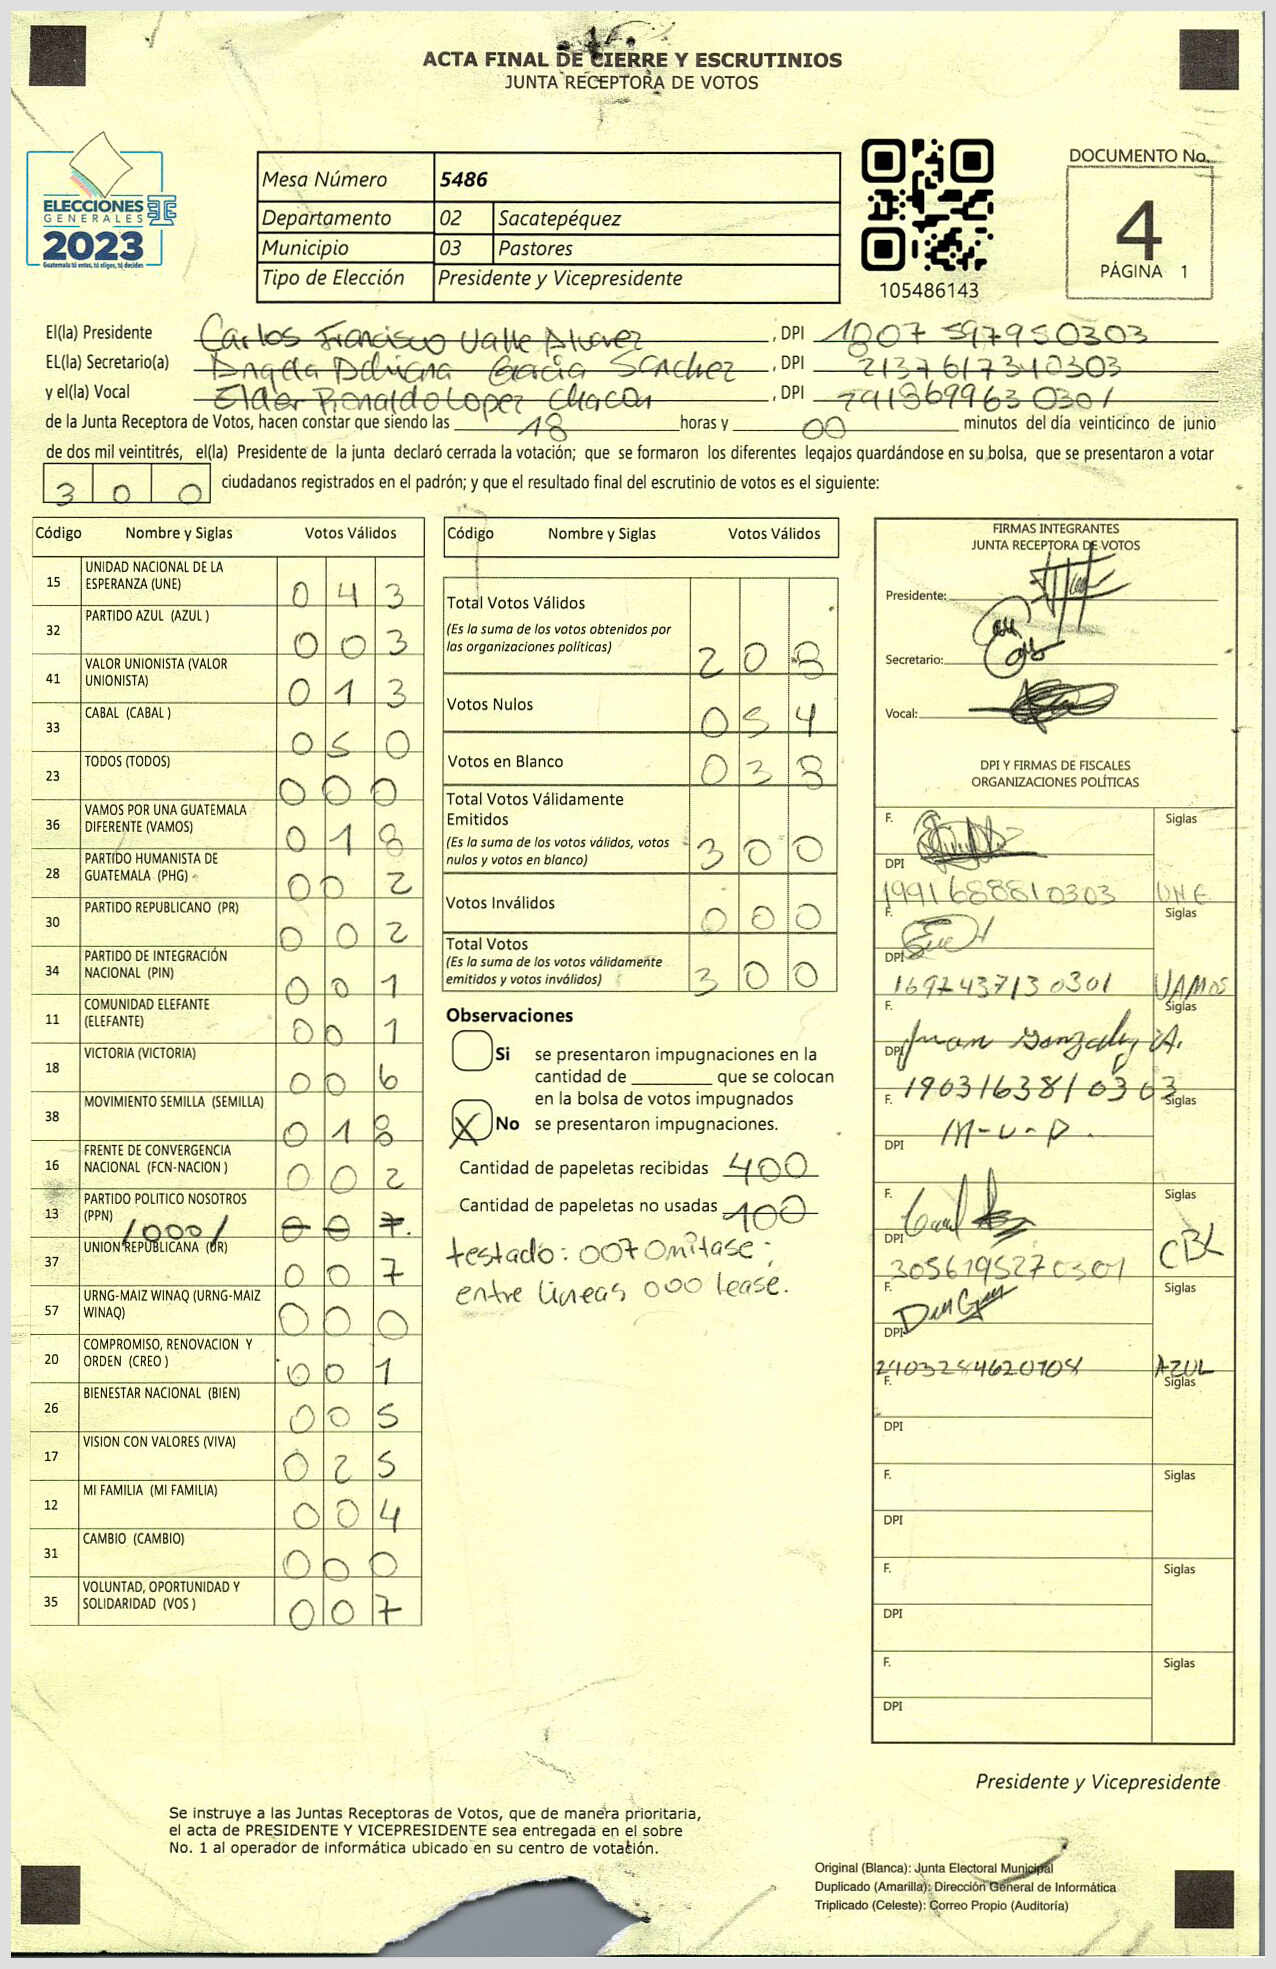 ACTA FINAL DE CIERRE Y ESCRUTINIOS
JUNTA RECEPTORA DE VOTOS
ELECCIONES
GENERALES
2023
Guatemala tú votas, tú eliges, tú decides
Mesa Número 5486
Departamento 02 Sacatepéquez
Municipio 03 Pastores
Tipo de Elección Presidente y Vicepresidente
105486143
DOCUMENTO No.
4
PÁGINA 1
El(la) Presidente Carlos Francisco Valle Alvarez, DPI 1807 597950303
EL(la) Secretario(a) Angela Adriana Garcia Sánchez, DPI 2137617340303
y el(la) Vocal Elder Ronaldo Lopez Chacon, DPI 7919699630301
de la Junta Receptora de Votos, hacen constar que siendo las 18 horas y 00 minutos del día veinticinco de junio
de dos mil veintitrés, el(la) Presidente de la junta declaró cerrada la votación; que se formaron los diferentes legajos guardándose en su bolsa, que se presentaron a votar
300 ciudadanos registrados en el padrón; y que el resultado final del escrutinio de votos es el siguiente:
Código Nombre y Siglas Votos Válidos
15 UNIDAD NACIONAL DE LA ESPERANZA (UNE) 043
32 PARTIDO AZUL (AZUL ) 003
41 VALOR UNIONISTA (VALOR UNIONISTA) 013
33 CABAL (CABAL ) 050
23 TODOS (TODOS) 000
36 VAMOS POR UNA GUATEMALA DIFERENTE (VAMOS) 018
28 PARTIDO HUMANISTA DE GUATEMALA (PHG) 002
30 PARTIDO REPUBLICANO (PR) 002
34 PARTIDO DE INTEGRACIÓN NACIONAL (PIN) 001
11 COMUNIDAD ELEFANTE (ELEFANTE) 001
18 VICTORIA (VICTORIA) 006
38 MOVIMIENTO SEMILLA (SEMILLA) 018
16 FRENTE DE CONVERGENCIA NACIONAL (FCN-NACION ) 002
13 PARTIDO POLITICO NOSOTROS (PPN) /000/ 007.
37 UNION REPUBLICANA (UR) 007
57 URNG-MAIZ WINAQ (URNG-MAIZ WINAQ) 000
20 COMPROMISO, RENOVACION Y ORDEN (CREO ) 001
26 BIENESTAR NACIONAL (BIEN) 005
17 VISION CON VALORES (VIVA) 025
12 MI FAMILIA (MI FAMILIA) 004
31 CAMBIO (CAMBIO) 000
35 VOLUNTAD, OPORTUNIDAD Y SOLIDARIDAD (VOS ) 007
Código Nombre y Siglas Votos Válidos
Total Votos Válidos
(Es la suma de los votos obtenidos por
las organizaciones políticas) 208
Votos Nulos 054
Votos en Blanco 038
Total Votos Válidamente
Emitidos
(Es la suma de los votos válidos, votos
nulos y votos en blanco) 300
Votos Inválidos 000
Total Votos
(Es la suma de los votos válidamente
emitidos y votos inválidos) 300
Observaciones
Si se presentaron impugnaciones en la
cantidad de ________ que se colocan
en la bolsa de votos impugnados
X No se presentaron impugnaciones.
Cantidad de papeletas recibidas 400
Cantidad de papeletas no usadas 100
testado: 007 Omitase;
entre lineas 000 lease.
FIRMAS INTEGRANTES
JUNTA RECEPTORA DE VOTOS
Presidente:
Secretario:
Vocal:
DPI Y FIRMAS DE FISCALES
ORGANIZACIONES POLÍTICAS
F. Siglas
DPI
1991688810303 UNE
F. Siglas
DPI
1697437130301 VAMOS
F. Siglas
DPI Juan Gonzalez A.
1903163810303
F. Siglas
DPI M-V-P.
F. Siglas
DPI
3056195270301 CBL
F. Siglas
DPI
2903284620708 AZUL
F. Siglas
DPI
F. Siglas
DPI
F. Siglas
DPI
F. Siglas
DPI
Presidente y Vicepresidente
Se instruye a las Juntas Receptoras de Votos, que de manera prioritaria,
el acta de PRESIDENTE Y VICEPRESIDENTE sea entregada en el sobre
No. 1 al operador de informática ubicado en su centro de votación.
Original (Blanca): Junta Electoral Municipal
Duplicado (Amarilla): Dirección General de Informática
Triplicado (Celeste): Correo Propio (Auditoría)